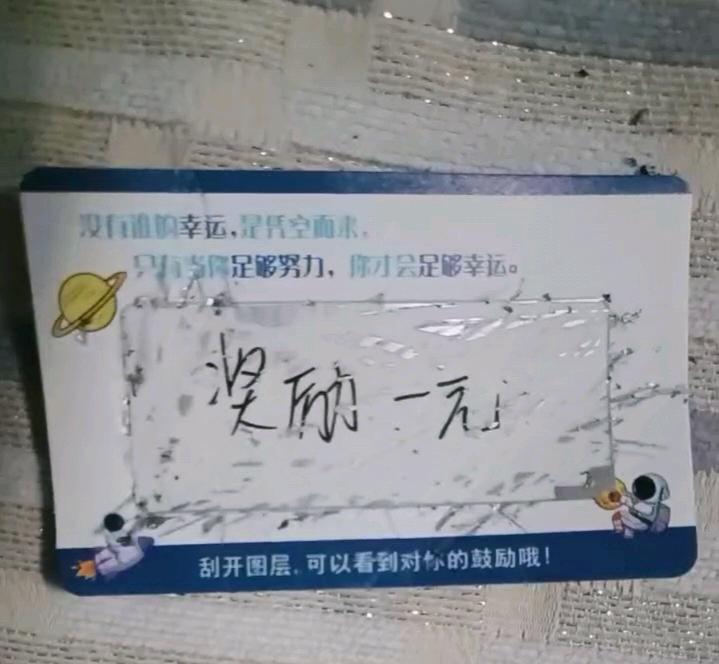 没有谁的幸运,是凭空而来,
只有当你足够努力,你才会足够幸运。
奖励一元
刮开图层,可以看到对你的鼓励哦!